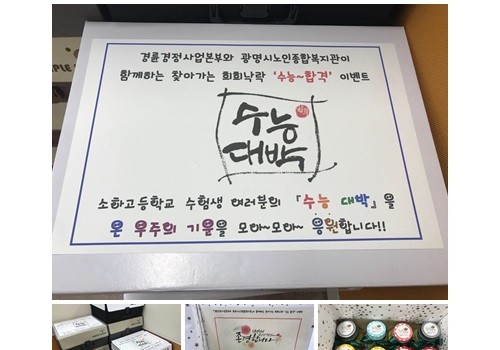 경륜경정사업본부와 광명시노인종합복지관이
함께하는 찾아가는 희희낙락 '수능~합격' 이벤트
수능
대박
소하고등학교 수험생 여러분의 『수능 대박』을
온 우주의 기운을 모아~모아~ 응원합니다!!